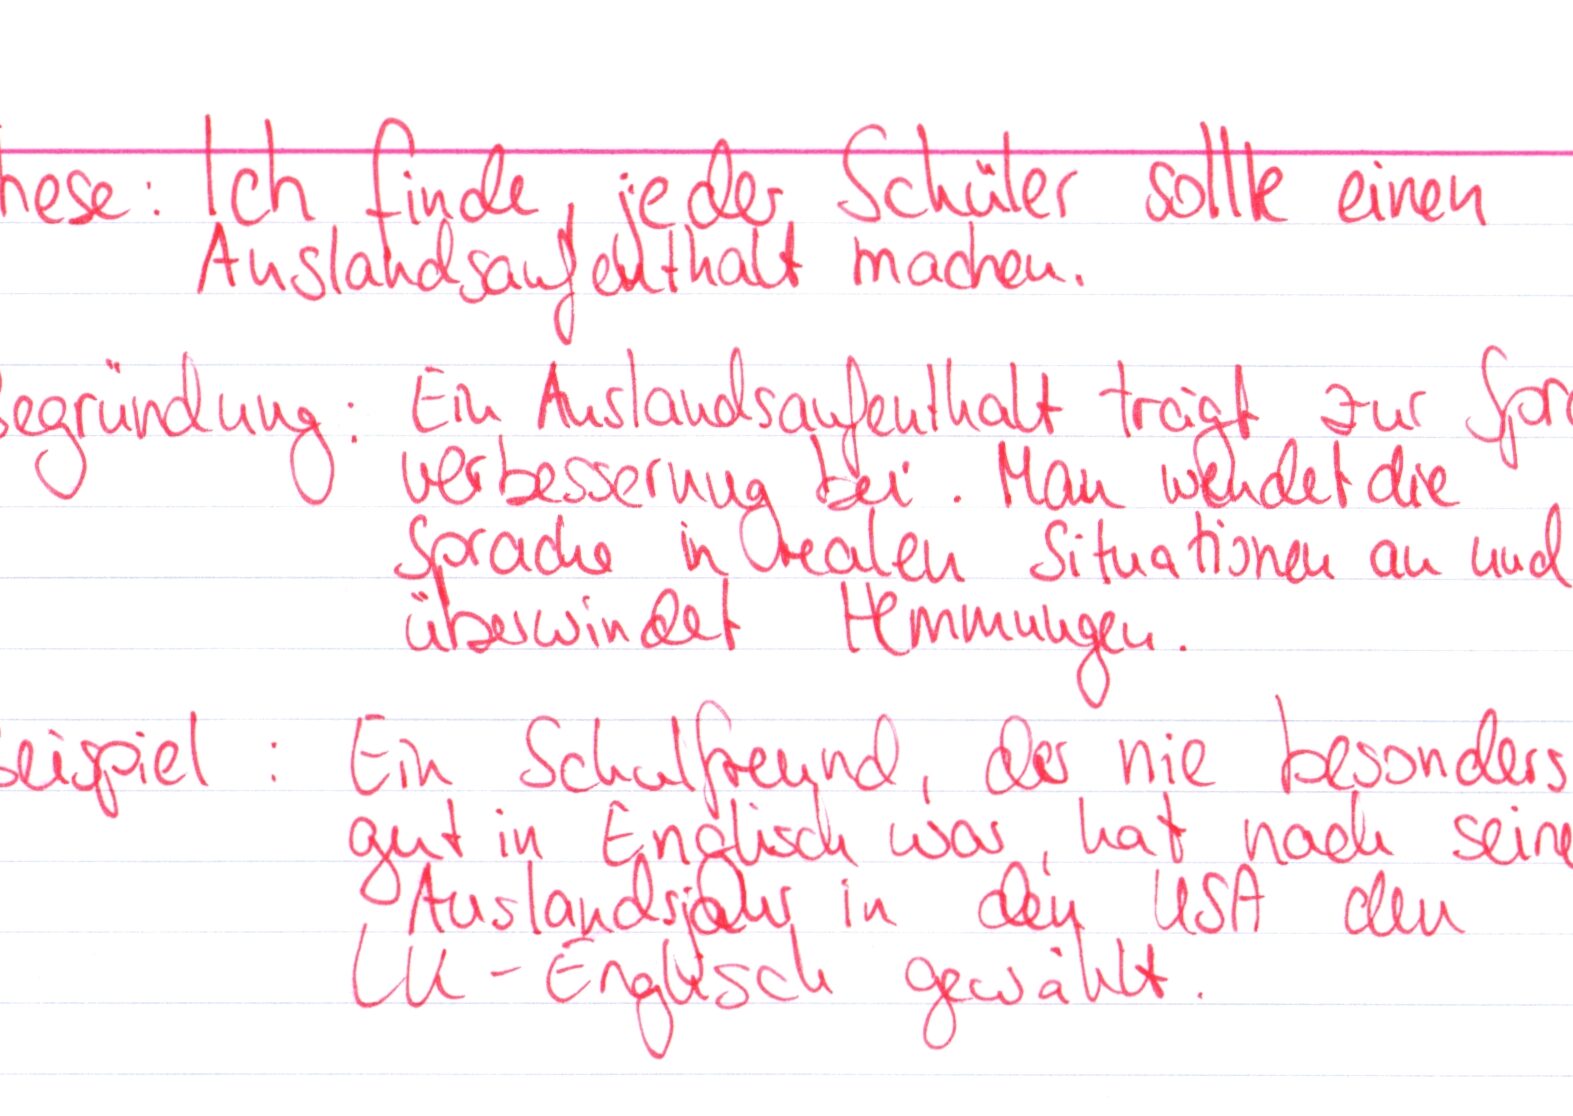 hese: Ich finde, jeder Schüler sollte einen
Auslandsaufenthalt machen.
Begründung: Ein Auslandsaufenthalt trägt zur Spra
verbesserung bei. Man wendet die
Sprache in realen Situationen an und
überwindet Hemmungen.
Beispiel: Ein Schulfreund, der nie besonders
gut in Englisch war, hat nach seine
Auslandsjahr in den USA den
LK-Englisch gewählt.